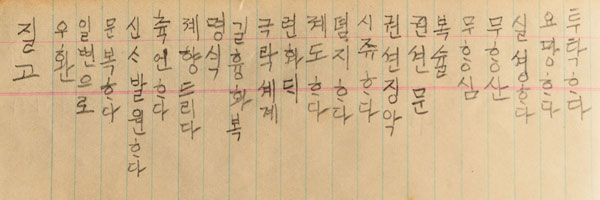 투탁ᄒᆞ다
요망ᄒᆞ다
실셩ᄒᆞ다
무ᄒᆞᆼ산
무ᄒᆞᆼ심
복술
권션문
권션징악
시쥬ᄒᆞ다
졔도ᄒᆞ다
극락셰계
길흉화복
명식
졔향드리다
축언ᄒᆞ다
신ᄉᆞ발원ᄒᆞ다
문복ᄒᆞ다
일변으로
우환